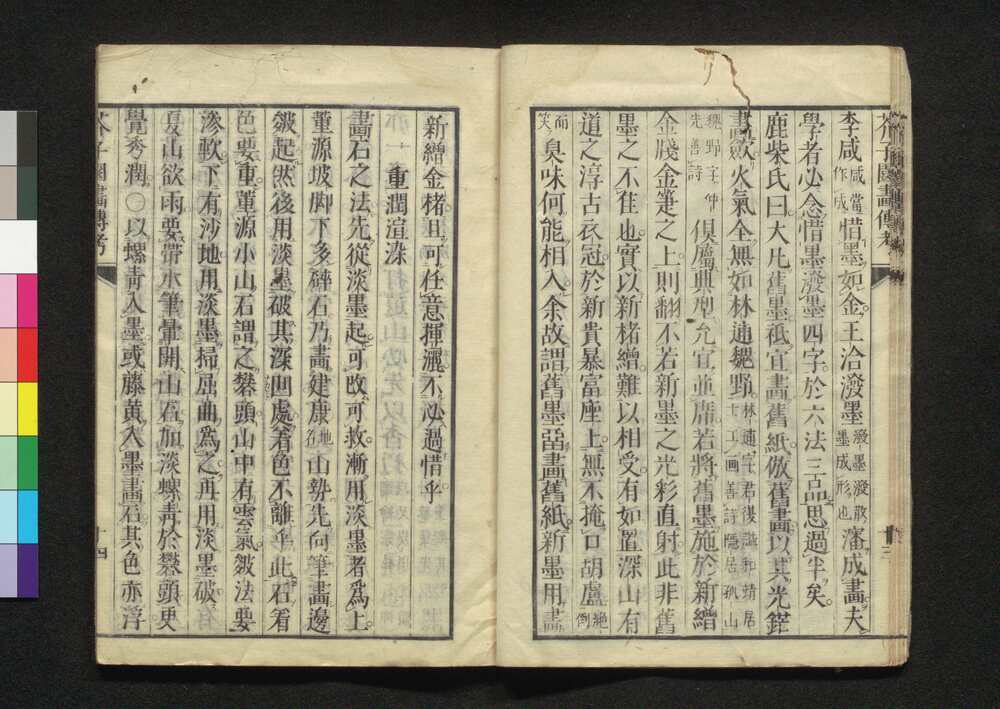 芥子園畫傳考
李咸咸當作成惜墨如金王洽潑墨潑墨潑散墨成形也瀋成畫夫
學者必念惜墨潑墨四字於六法三品思過半矣
鹿柴氏曰大凡舊墨祇宜畫舊紙倣舊畫以其光鋩
盡斂火氣全無如林逋魏野林逋字君復諡和靖居士工画善詩隱居孤山魏野字仲先善詩俱屬典型允宜並席若將舊墨施於新繒
金牋金箑之上則翻不若新墨之光彩直射此非舊
墨之不佳也實以新楮繒難以相受有如置深山有
道之淳古衣冠於新貴暴富座上無不掩口胡盧絶倒
而笑臭味何能相入余故謂舊墨留畫舊紙新墨用畫
十三
新繒金楮且可任意揮灑不必過惜乎
重潤渲染
畫石之法先從淡墨起可改可救漸用淡墨者爲上
董源坡脚下多碎石乃畫建康地名山勢先向筆畫邊
皴起然後用淡墨破其深凹處着色不離乎此石着
色要重董源小山石謂之礬頭山中有雲氣皴法要
滲軟下有沙地用淡墨掃屈曲爲之再用淡墨破
夏山欲雨要帶水筆暈開山石加淡螺靑於礬頭更
覺秀潤〇以螺靑入墨或藤黃入墨畫石其色亦浮
芥子園畫傳考
十四